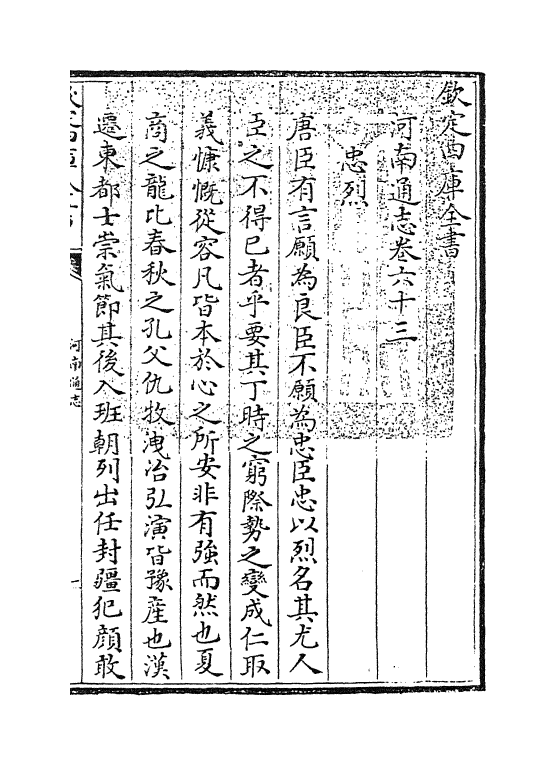 欽定四庫全書
河南通志卷六十三
忠烈
唐臣有言願為良臣不願為忠臣忠以烈名其尤人
臣之不得已者乎要其丁時之窮際勢之變成仁取
義慷慨從容凡皆本於心之所安非有強而然也夏
商之龍比春秋之孔父仇牧洩冶弘演皆豫産也漢
遷東都士崇氣節其後入班朝列出任封疆犯顔敢
欽定四庫全書
河南通志
一